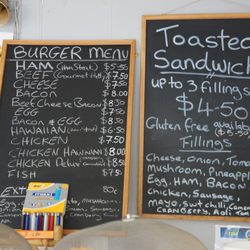 BURGER MENU
HAM (Ham Steak) $5.50
BEEF (Gourmet $7.50
CHEESE $7.50
BACON $8.00
Beef Cheese Bacon
EGG $7.50
BACON & EGG
HAWAIIAN
CHICKEN $7.50
CHICKEN HAWAIIAN $8.00
CHICKEN Deluxe
FISH $7.50
80c
Toasted
Sandwich
up to 3 fillings
$4.50
Gluten free available
Fillings
Cheese, Onion, Toma
mushroom, Pineapple
Egg, HAM, BACON
Chicken, Sausage,
Mayo, Swt chilli,
CRANBERRY, Aoli